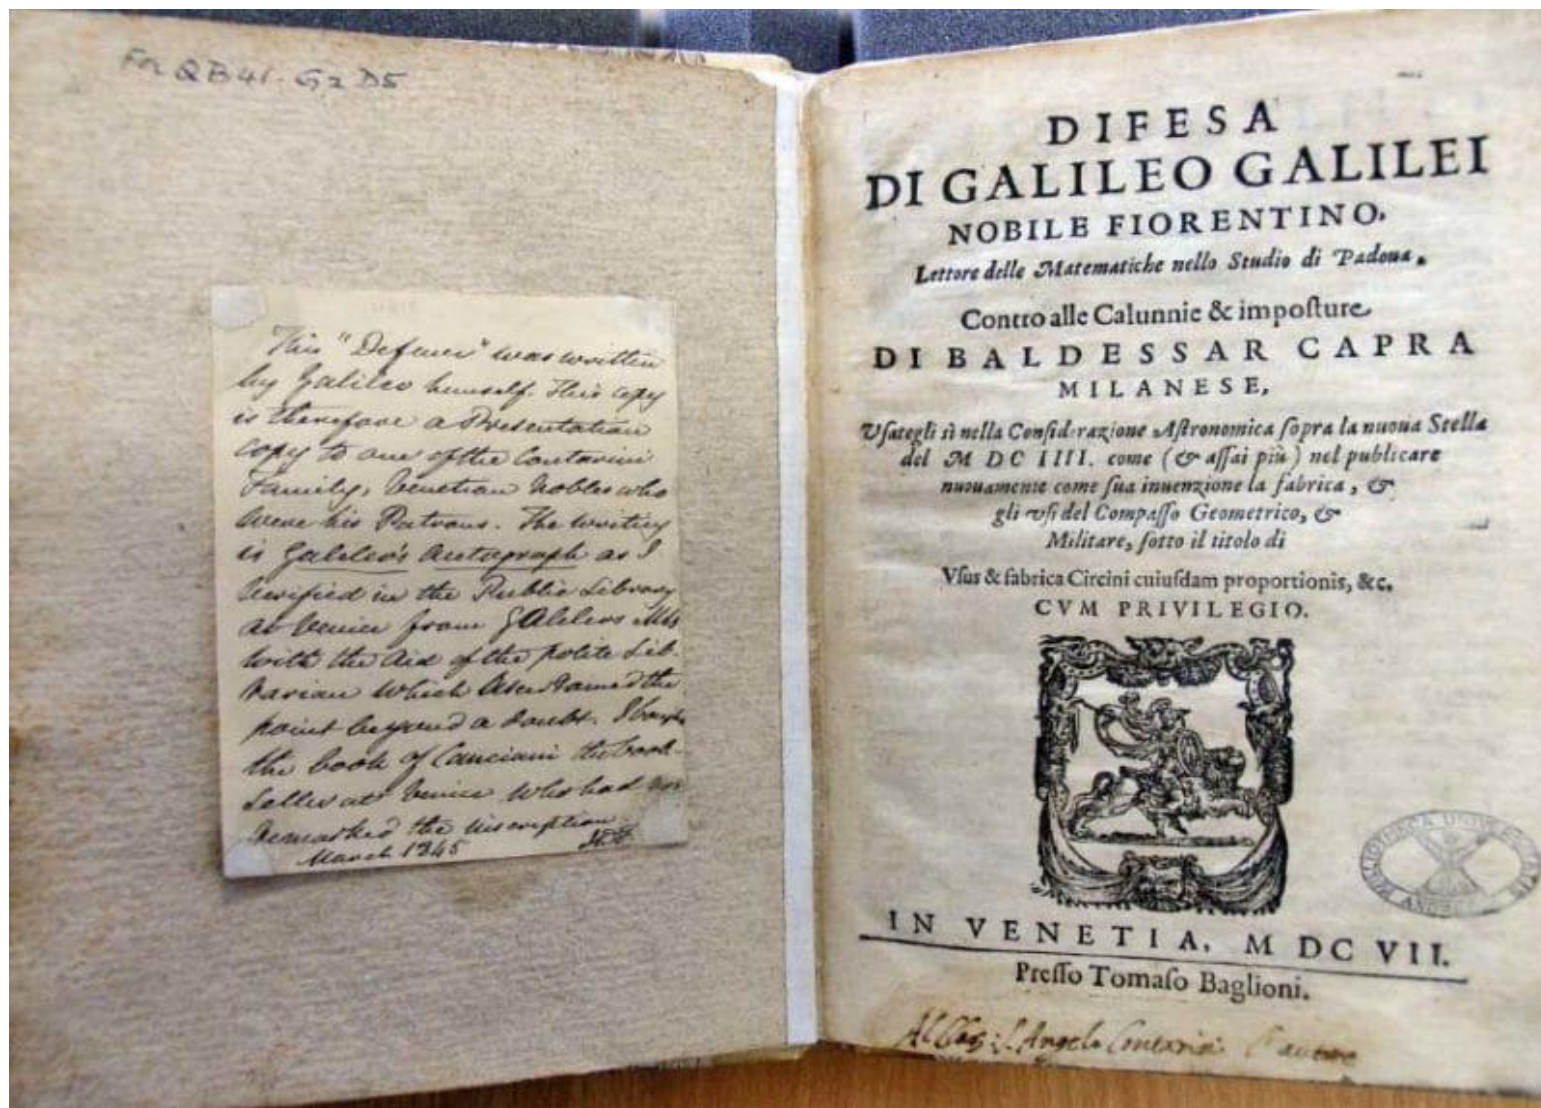 For QB41.G2D5
This "Defence" was written
by Galileo himself. This copy
is therefore a Presentation
copy to one of the Contarini
Family, Venetian Nobles who
were his Patrons. The writing
is Galileo's autograph as I
verified in the Public Library
at Venice from Galileos Mss
with the aid of the polite Lib-
rarian which ascertained the
point beyond a doubt. I bought
the book of Canciani the book-
seller at Venice who had not
remarked the inscription
March 1845
DIFESA
DI GALILEO GALILEI
NOBILE FIORENTINO,
Lettore delle Matematiche nello Studio di Padoua,
Contro alle Calunnie & impoſture
DI BALDESSAR CAPRA
MILANESE,
Vſategli sì nella Conſiderazione Aſtronomica ſopra la nuoua Stella
del M DC IIII. come (& aſſai più) nel publicare
nuouamente come ſua inuenzione la fabrica, &
gli vſi del Compaſſo Geometrico, &
Militare, ſotto il titolo di
Vſus & fabrica Circini cuiuſdam proportionis, &c.
CVM PRIVILEGIO.
BIBLIOTHECA UNIVERSITATIS
IN VENETIA, M DC VII.
Preſſo Tomaſo Baglioni.
Angelo Contarini l'autore